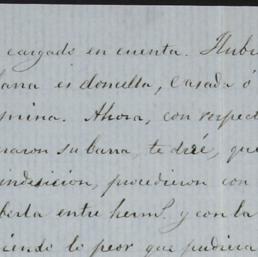 cargado en cuenta.
barra es doncella, casada ó
mina. Ahora, con respect
maron su barra, te diré, que
indesicion, procedieron con
berla entre herm.s y con la
iendo lo peor que pudiera